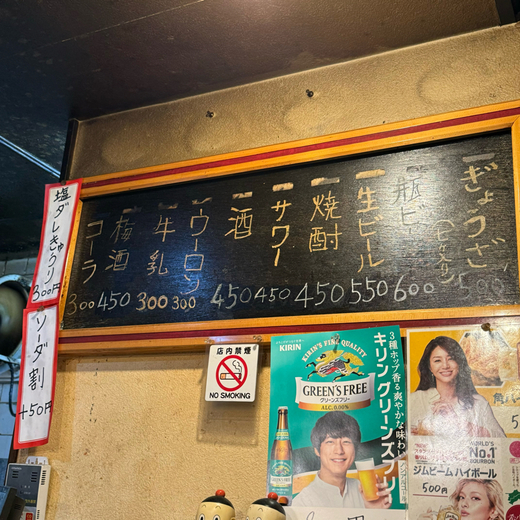 ぎょうざ
瓶ビ
600
生ビール
550
焼酎
450
サワー
450
酒
450
ウーロン
300
牛乳
300
梅酒
450
コーラ
300
塩ダレきゅうり
300円
ソーダ割
+50円
店内禁煙
NO SMOKING
KIRIN
3種ホップ香る爽やかな味わい
キリングリーンズフリー
KIRIN'S FINE QUALITY
GREEN'S FREE
グリーンズフリー
ALC.0.00%
WORLD'S
No.1
BOURBON
ジムビームハイボール
500円